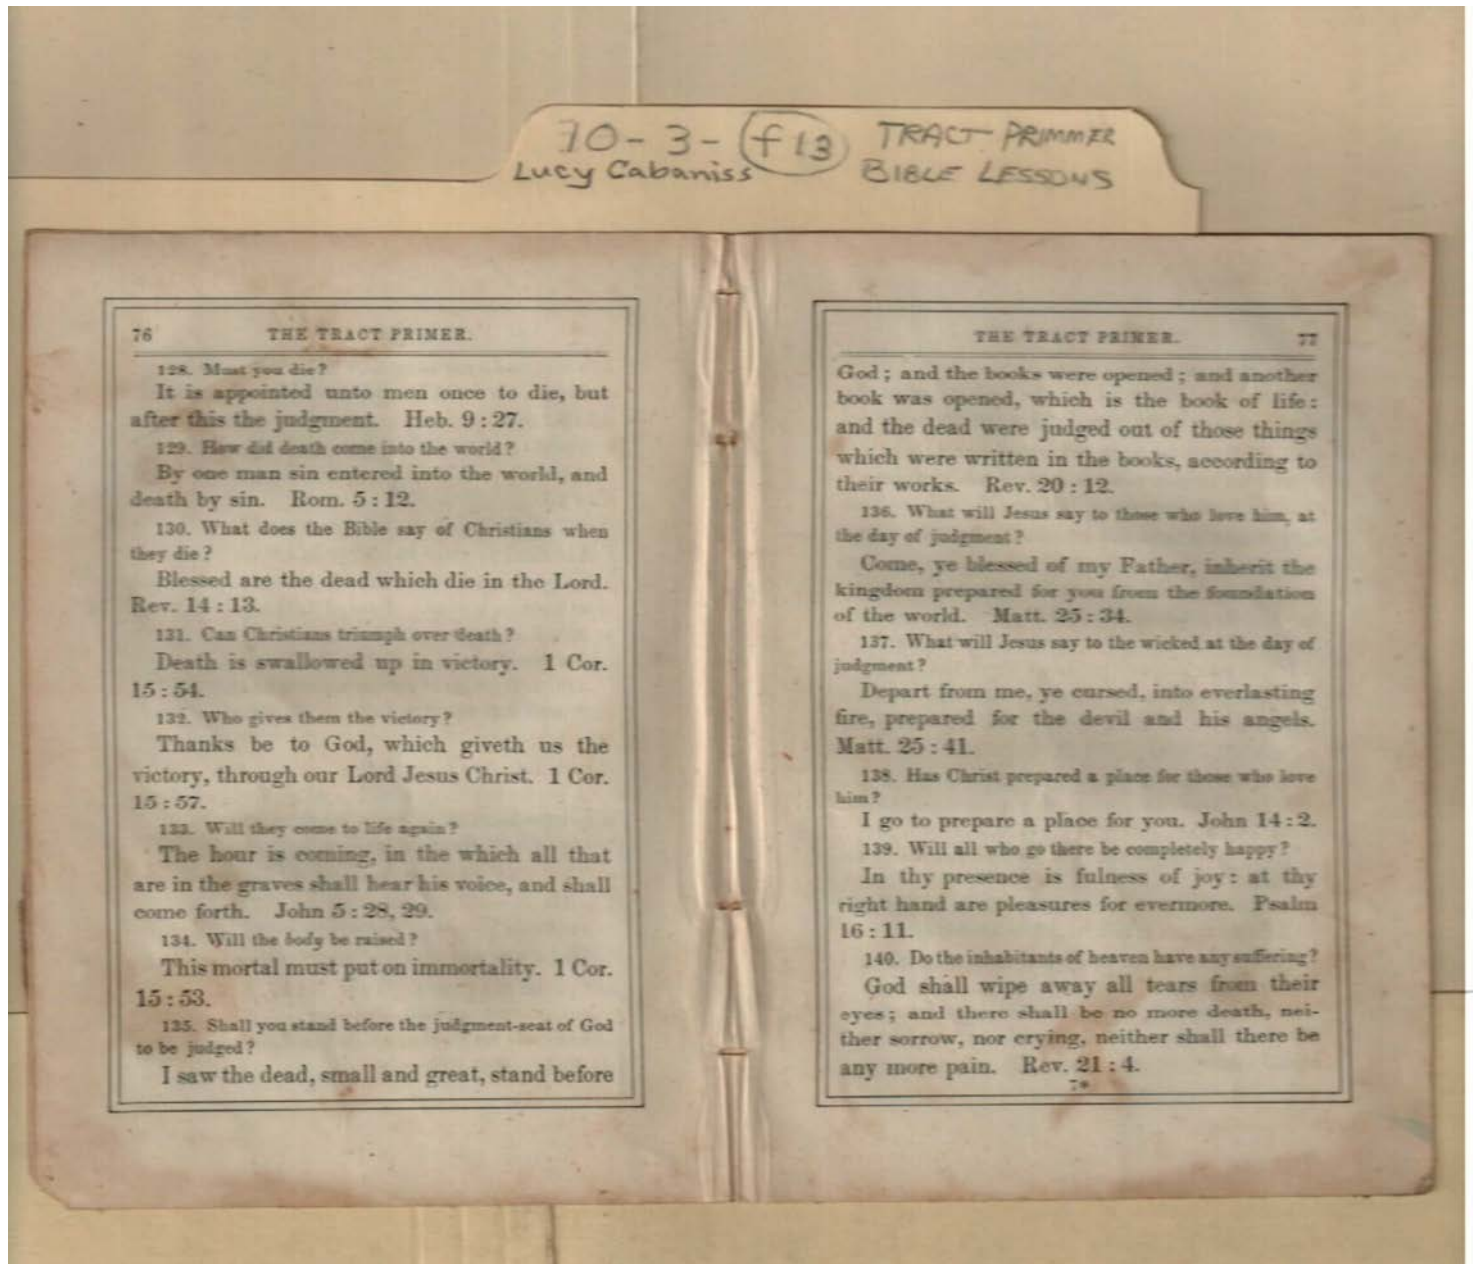 70-3-f13 TRACT PRIMMER
Lucy Cabaniss BIBLE LESSONS
76 THE TRACT PRIMER.
128. Must you die?
It is appointed unto men once to die, but
after this the judgment. Heb. 9:27.
129. How did death come into the world?
By one man sin entered into the world, and
death by sin. Rom. 5:12.
130. What does the Bible say of Christians when
they die?
Blessed are the dead which die in the Lord.
Rev. 14:13.
131. Can Christians triumph over death?
Death is swallowed up in victory. 1 Cor.
15:54.
132. Who gives them the victory?
Thanks be to God, which giveth us the
victory, through our Lord Jesus Christ. 1 Cor.
15:57.
133. Will they come to life again?
The hour is coming, in the which all that
are in the graves shall hear his voice, and shall
come forth. John 5:28, 29.
134. Will the body be raised?
This mortal must put on immortality. 1 Cor.
15:53.
135. Shall you stand before the judgment-seat of God
to be judged?
I saw the dead, small and great, stand before
THE TRACT PRIMER. 77
God; and the books were opened; and another
book was opened, which is the book of life:
and the dead were judged out of those things
which were written in the books, according to
their works. Rev. 20:12.
136. What will Jesus say to those who love him, at
the day of judgment?
Come, ye blessed of my Father, inherit the
kingdom prepared for you from the foundation
of the world. Matt. 25:34.
137. What will Jesus say to the wicked at the day of
judgment?
Depart from me, ye cursed, into everlasting
fire, prepared for the devil and his angels.
Matt. 25:41.
138. Has Christ prepared a place for those who love
him?
I go to prepare a place for you. John 14:2.
139. Will all who go there be completely happy?
In thy presence is fulness of joy: at thy
right hand are pleasures for evermore. Psalm
16:11.
140. Do the inhabitants of heaven have any suffering?
God shall wipe away all tears from their
eyes; and there shall be no more death, nei-
ther sorrow, nor crying, neither shall there be
any more pain. Rev. 21:4.
7*